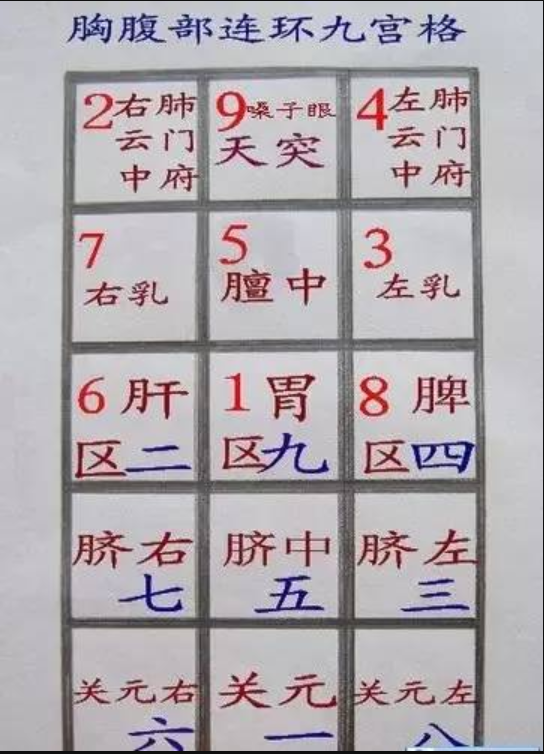 胸腹部连环九宫格
2右肺 9嗓子眼 4左肺
云门 天突 云门
中府 中府
7 5 3
右乳 膻中 左乳
6肝 1胃 8脾
区二 区九 区四
脐右 脐中 脐左
七 五 三
关元右 关元 关元左
六 一 八